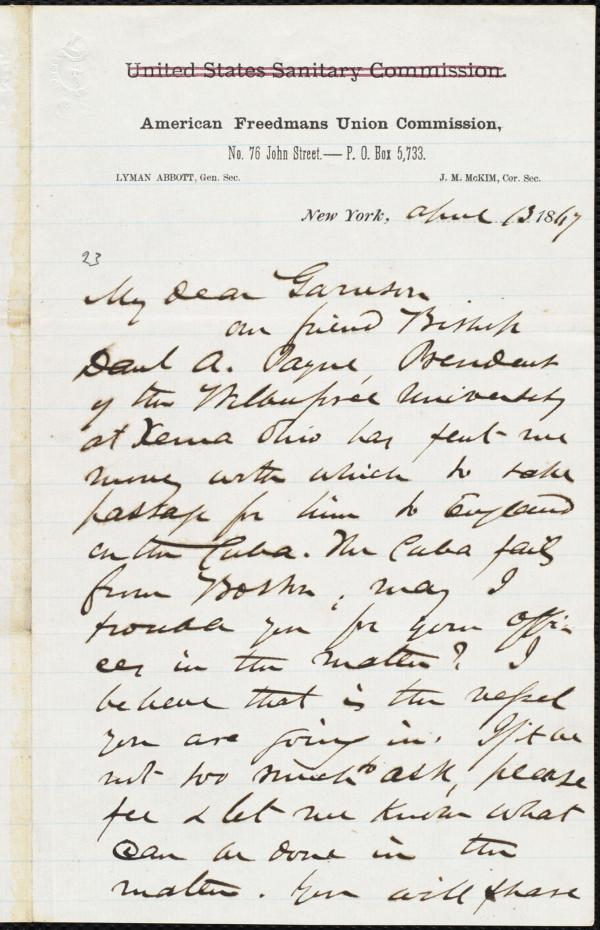 United States Sanitary Commission.
American Freedmans Union Commission,
No. 76 John Street.— P. O. Box 5,733.
LYMAN ABBOTT, Gen. Sec. J. M. McKIM, Cor. Sec.
New York, April 13 1867
23
My dear Garrison
our friend Bishop
Danl A. Payne, President
of the Wilberforce University
at Xenia Ohio has sent me
money with which to take
passage for him to England
on the Cuba. The Cuba sails
from Boston; may I
trouble you for your offi-
ces in the matter? I
believe that is the vessel
you are going in. If it be
not too much to ask, please
see & let me know what
can be done in the
matter. You will share